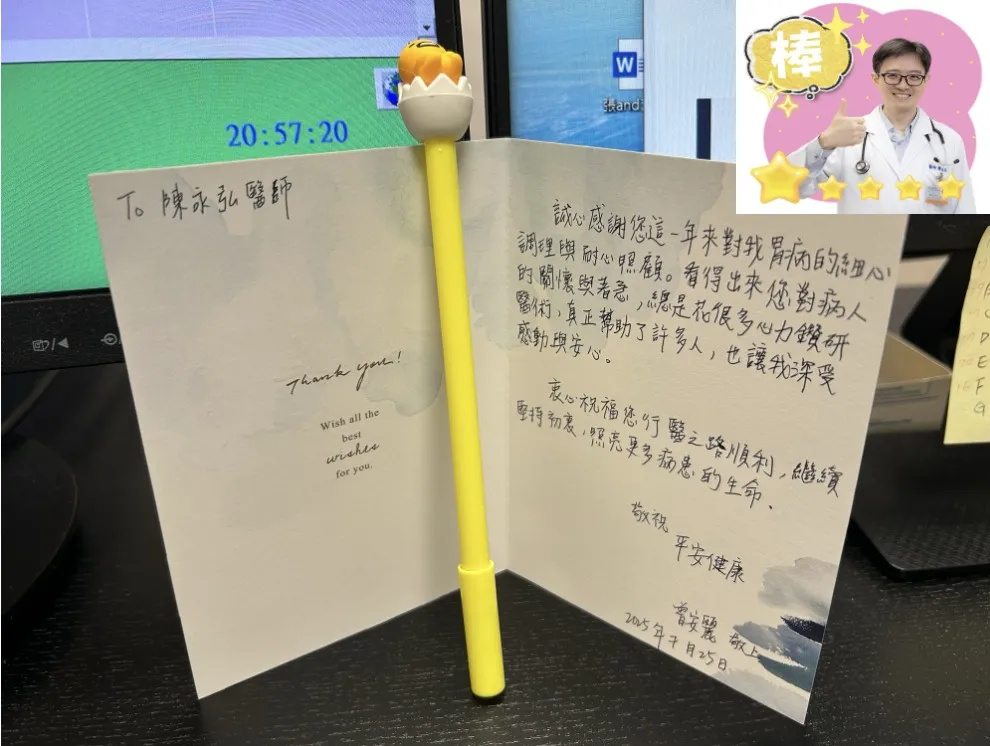 20:57:20
W
張and
棒
To 陳永弘醫師
Thank you!
Wish all the
best
wishes
for you.
誠心感謝您這一年來對我胃病的細心
調理與耐心照顧。看得出來您對病人
的關懷與著急，總是花很多心力鑽研
醫術，真正幫助了許多人，也讓我深受
感動與安心。
衷心祝福您行醫之路順利，繼續
堅持初衷，照亮更多病患的生命．
敬祝
平安健康
曾安麗 敬上
2025年7月25日
E
F
G